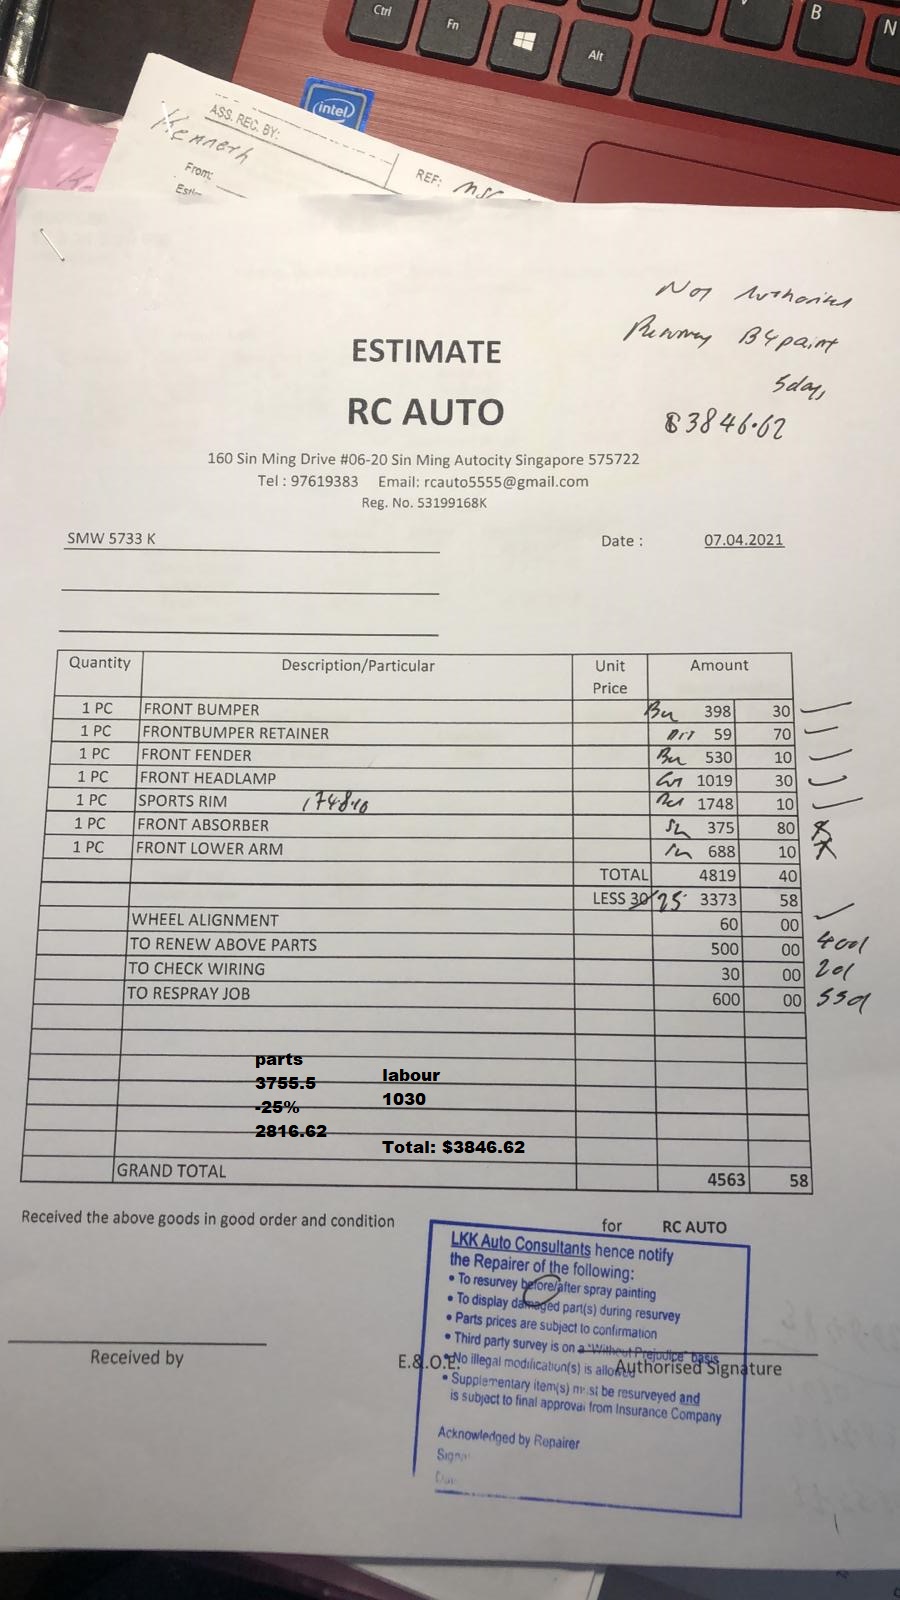 Ctrl
Fn
Alt
B
N
intel
ASS. REC. BY:
Kenneth
From:
REF:
Not Authorised
B4 paint
5days
$3846.62
ESTIMATE
RC AUTO
160 Sin Ming Drive #06-20 Sin Ming Autocity Singapore 575722
Tel : 97619383 Email: rcauto5555@gmail.com
Reg. No. 53199168K
SMW 5733 K Date : 07.04.2021
Quantity Description/Particular Unit Price Amount
1 PC FRONT BUMPER 398 30
1 PC FRONTBUMPER RETAINER 59 70
1 PC FRONT FENDER 530 10
1 PC FRONT HEADLAMP 1019 30
1 PC SPORTS RIM 1748.10 1748 10
1 PC FRONT ABSORBER 375 80
1 PC FRONT LOWER ARM 688 10
TOTAL 4819 40
LESS 30 25 3373 58
WHEEL ALIGNMENT 60 00
TO RENEW ABOVE PARTS 500 00 400
TO CHECK WIRING 30 00 20
TO RESPRAY JOB 600 00 550
parts
labour
3755.5
1030
-25%
2816.62
Total: $3846.62
GRAND TOTAL 4563 58
Received the above goods in good order and condition for RC AUTO
LKK Auto Consultants hence notify
the Repairer of the following:
• To resurvey before/after spray painting
• To display damaged part(s) during resurvey
• Parts prices are subject to confirmation
• Third party survey is on a "Without Prejudice" basis
• No illegal modification(s) is allowed
• Supplementary item(s) must be resurveyed and
is subject to final approval from Insurance Company
Acknowledged by Repairer
Received by E.&.O.E. Authorised Signature